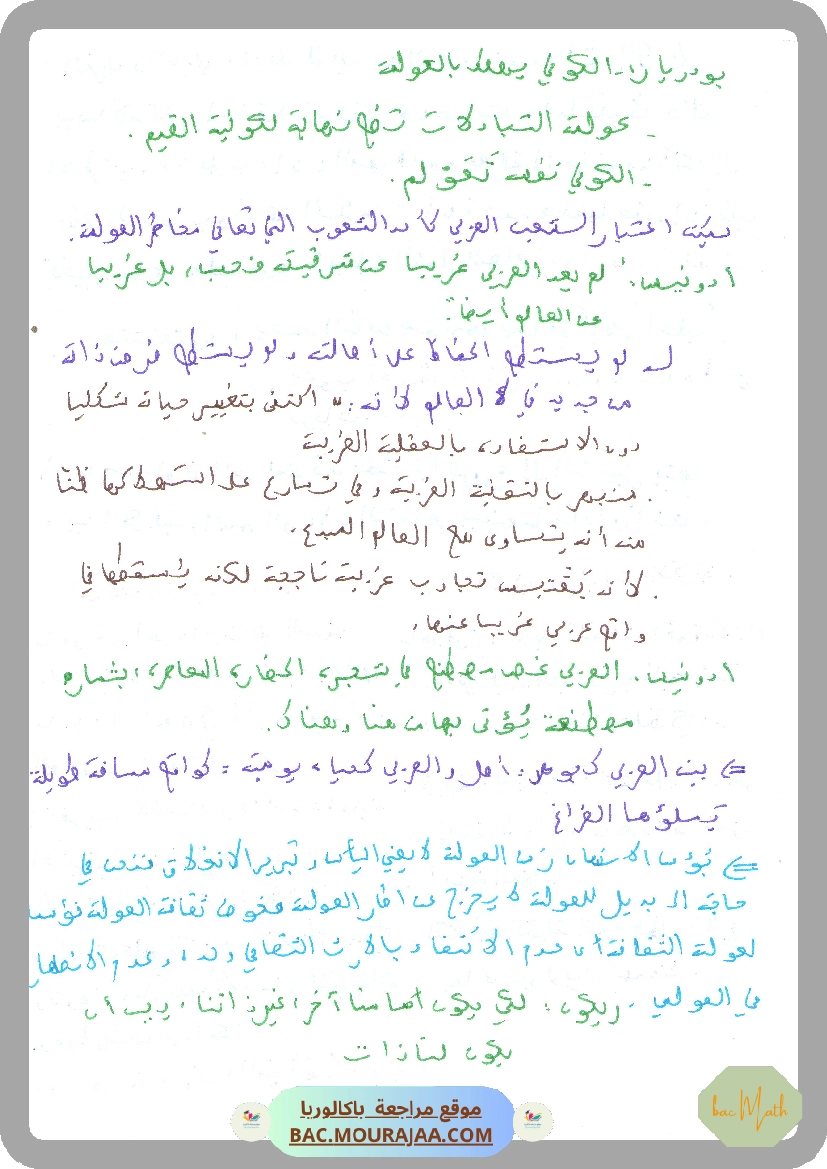 بودريار: الكوني يهلك بالعولمة
ـ عولمة التبادلات تضع نهاية لكونية القيم.
ـ الكوني نفسه تَعَوْلم.
يمكن اعتبار الشعب العربي كأحد الشعوب التي تعاني مخاطر العولمة.
أدونيس: "لم يعد العربي غريبا عن شرقيته فحسب، بل غريبا
عن العالم أيضا".
لم يستطع الحفاظ على أصالته ولم يستطع فرض ذاته
من جديد في العالم لأنه: اكتفى بتغيير حياته شكليا
دون الاستنفار بالعقلية الغربية
. منبهر بالتقنية الغربية وفي تسارع على استهلاكها ظنّا
منه أنه يتساوى مع العالم المبدع.
. لأنه يَقْتبس تجارب غربية ناجحة لكنه يُسقطها في
واقع عربي غريبا عنها.
أدونيس: العربي غصن مصطنع في شجرة الحضارة المعاصرة، بثمار
مصطنعة يُؤتى بها من هنا وهناك.
=> بين العربي كجوهر: أصل والعربي كحياة يومية = كواقع مسافة طويلة
يملؤها الفراغ
=> بؤس الإنسان زمن العولمة لا يعني اليأس وتبرير الانغلاق فنحن في
حاجة إلى بديل للعولمة لا يخرج عن إطار العولمة فنخوض ثقافة العولمة فنؤسس
لعولمة الثقافة أي عدم الاكتفاء بالإرث الثقافي وحده وعدم الانصهار
في العولمي. ريكور: لكي يكون أمامنا آخر، غير ذاتنا، يجب أن
يكون لنا ذات
موقع مراجعة باكالوريا
BAC.MOURAJAA.COM
bac Math